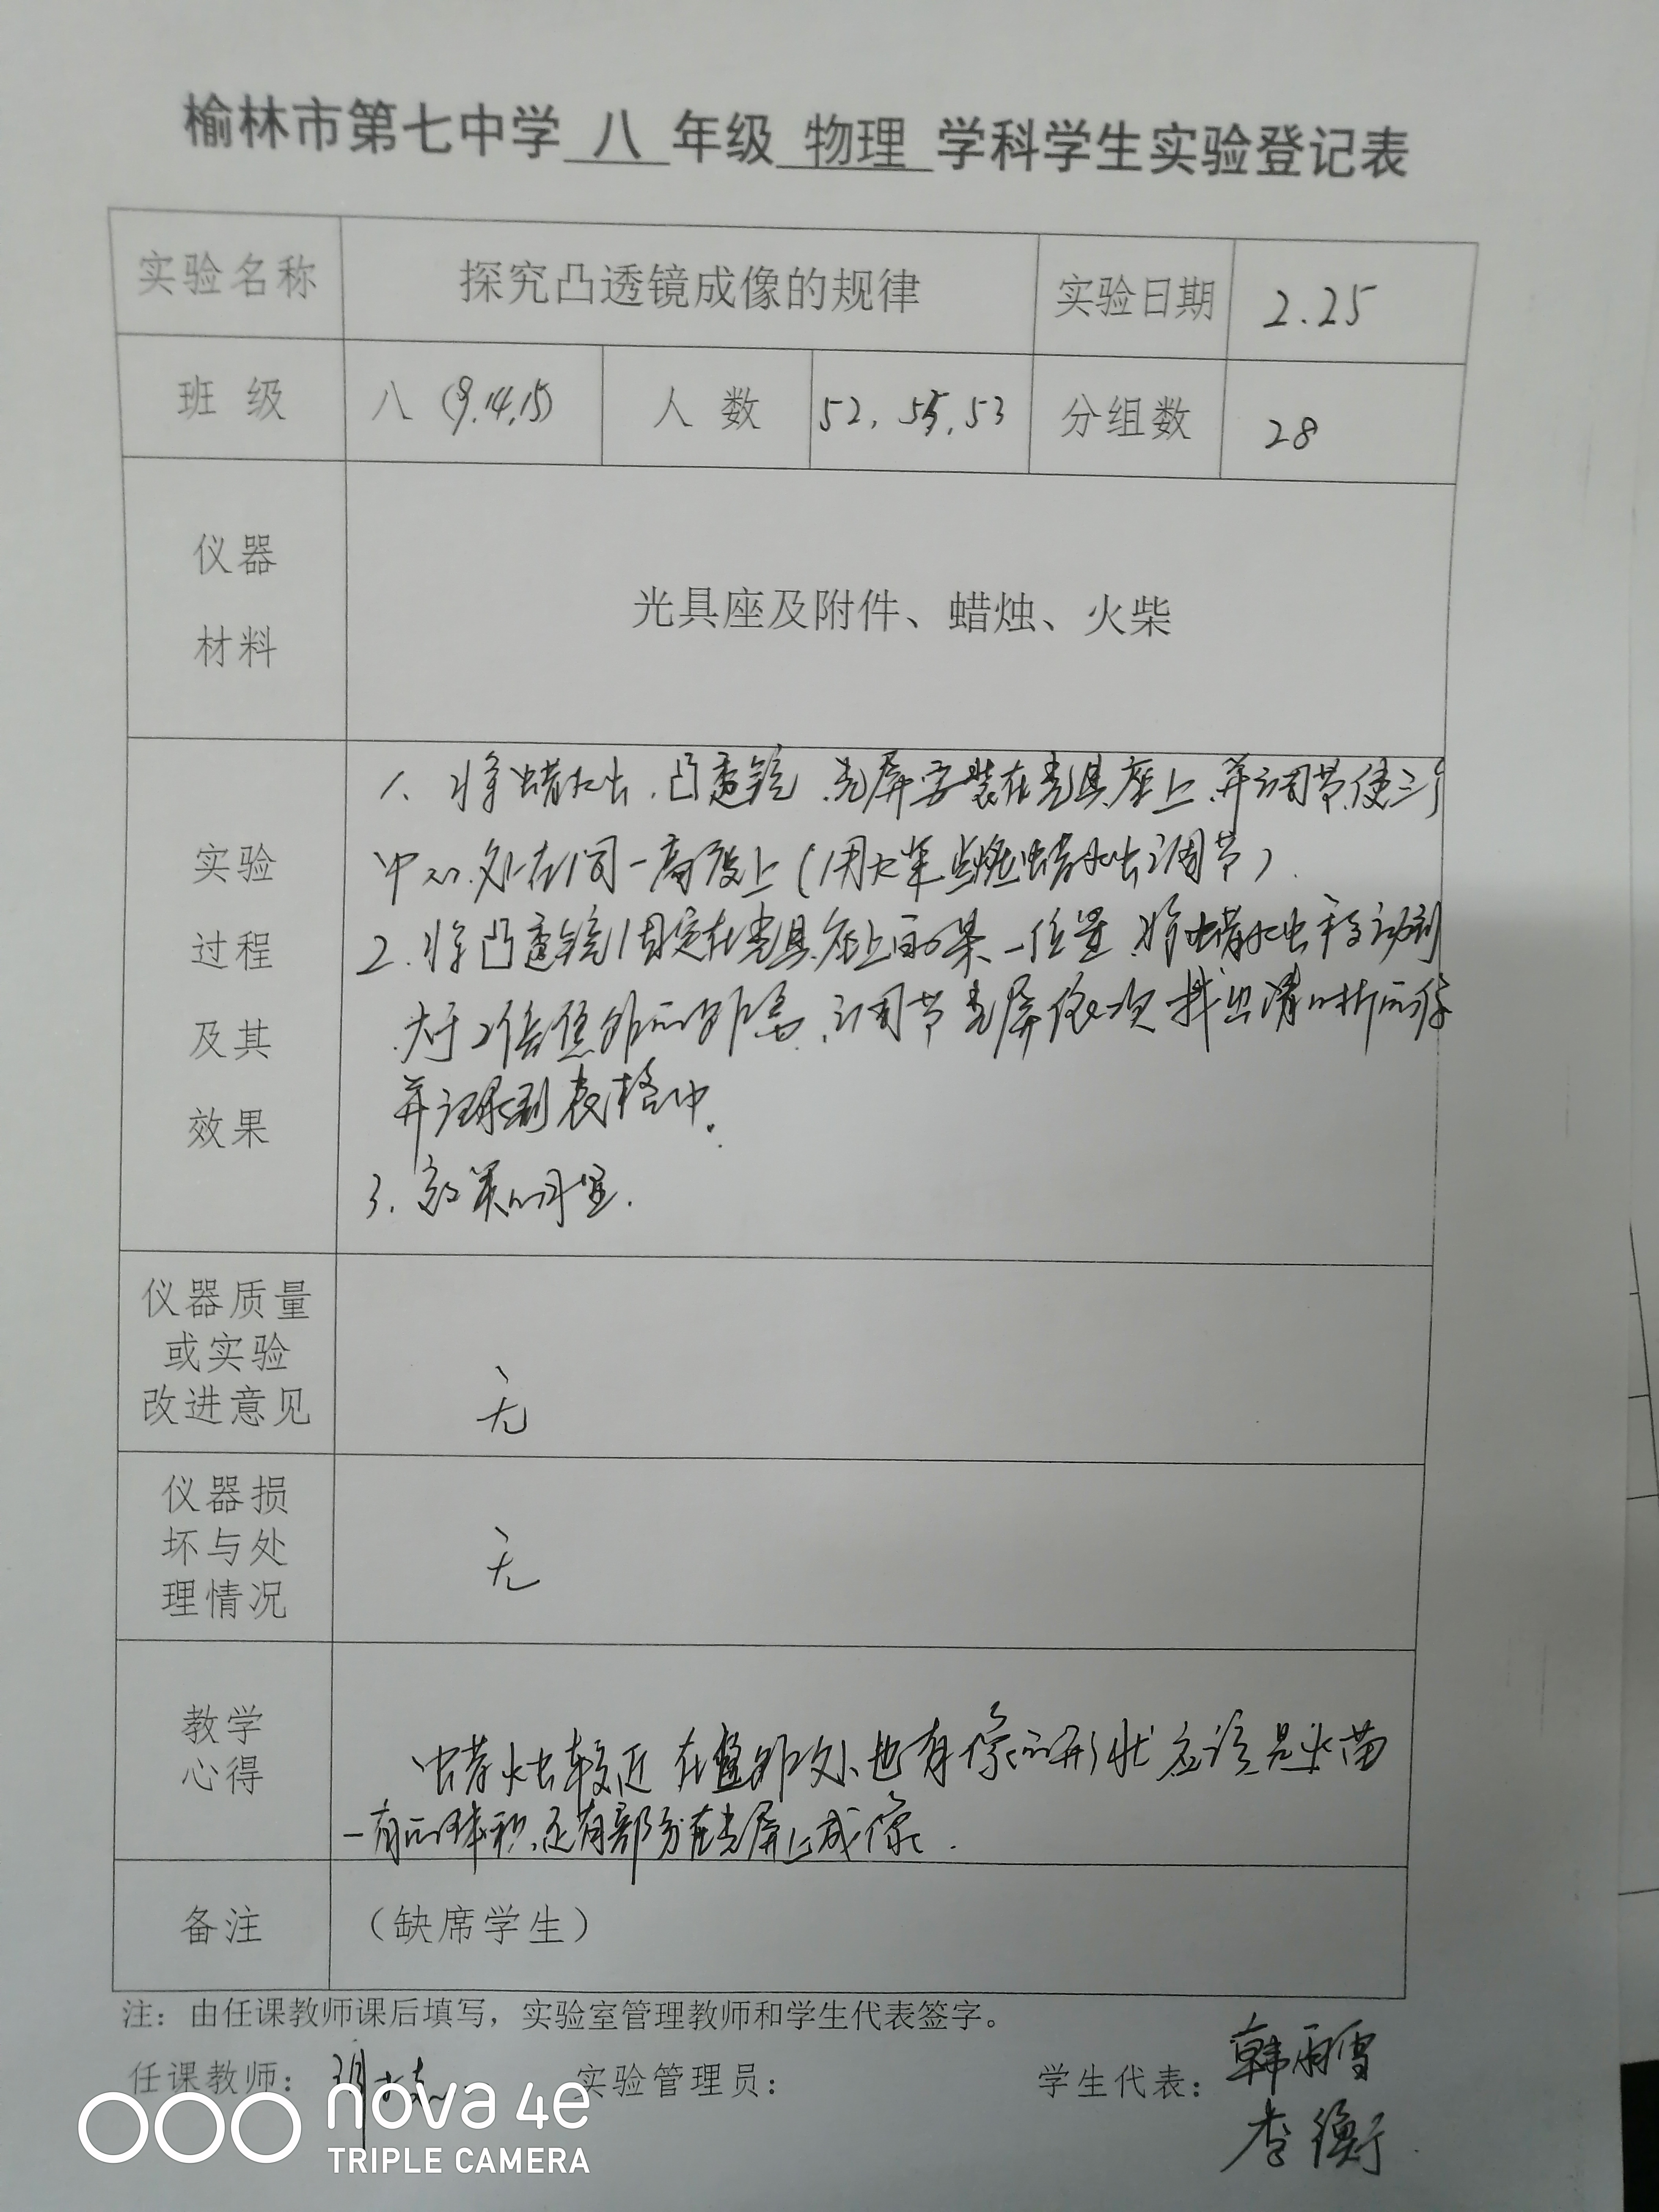 榆林市第七中学 八 年级 物理 学科学生实验登记表
实验名称 探究凸透镜成像的规律 实验日期 2.25
班 级 八 (9,14,15) 人 数 52, 55, 53 分组数 28
仪器
材料
光具座及附件、蜡烛、火柴
实验
过程
及其
效果
1、将蜡烛、凸透镜、光屏安装在光具座上,并调节使三个
中心处在同一高度上(用火柴点燃蜡烛调节)
2、将凸透镜固定在光具座上的某一位置,将蜡烛移动到
大于2倍焦距的距离,调节光屏依次找出清晰的像
并记录到表格中。
3、效果明显.
仪器质量
或实验
改进意见
无
仪器损
坏与处
理情况
无
教学
心得
蜡烛较近 在焦距处也有像的形状 应该是火苗
一有的体积,还有部分在光屏上成像.
备注 (缺席学生)
注:由任课教师课后填写,实验室管理教师和学生代表签字。
任课教师: 实验管理员: 学生代表: 韩雨雪
李衡
nova 4e
TRIPLE CAMERA